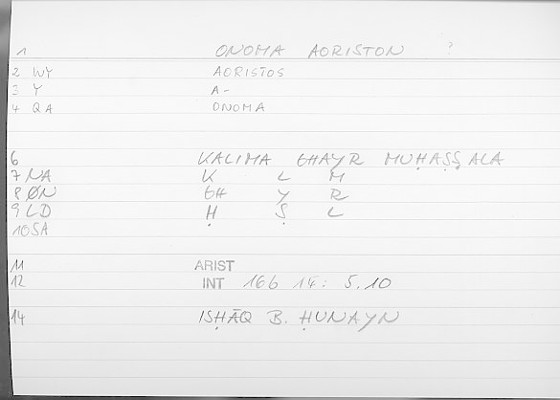 1 ONOMA AORISTON ?
2 WY AORISTOS
3 Y A-
4 QA ONOMA
6 KALIMA GHAYR MUḤAṢṢALA
7 NA K L M
8 ØN GH Y R
9 LD Ḥ Ṣ L
10 SA
11 ARIST
12 INT 16b 14: 5.10
14 ISḤĀQ B. ḤUNAYN